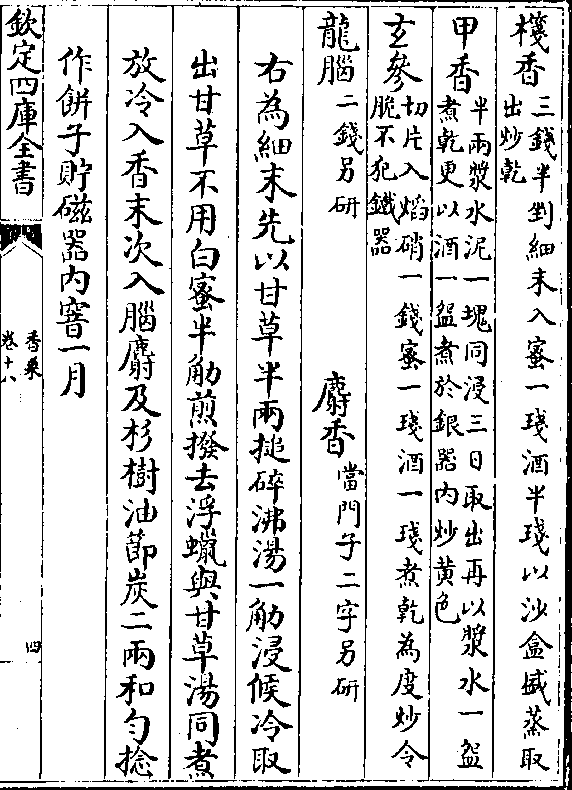 棧香三錢半剉細末入蜜一琖酒半琖以沙盒盛蒸取
出炒乾
甲香半兩漿水泥一塊同浸三日取出再以漿水一盌
煮乾更以酒一盌煮於銀器内炒黄色
玄參切片入熖硝一錢蜜一琖酒一琖煮乾為度炒令
脆不犯鐵器
龍腦二錢另研
麝香當門子二字另研
右為細末先以甘草半兩搥碎沸湯一觔浸候冷取
出甘草不用白蜜半觔煎撥去浮蠟與甘草湯同煮
放冷入香末次入腦麝及杉樹油節炭二兩和匀捻
作餅子貯磁器内窨一月
欽定四庫全書
香乗
卷十八
四